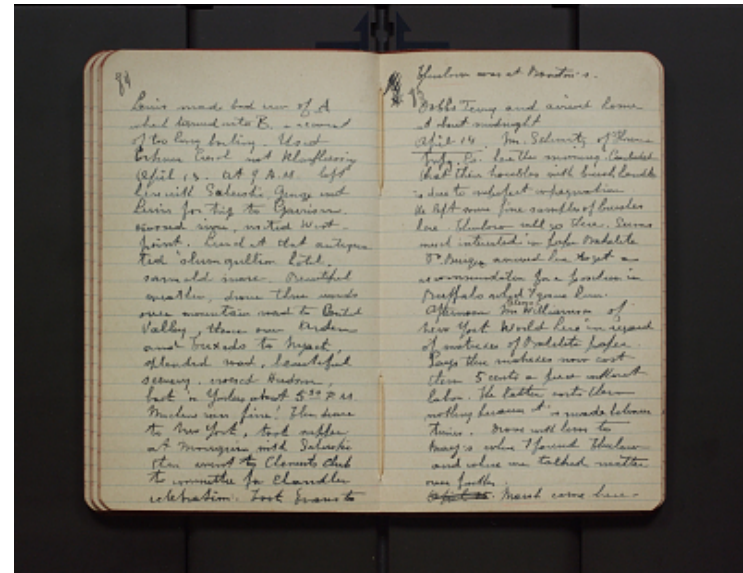 84
Louis made bad use of A
which turned into B. account
of too long boiling. Used
not
April 13. At 9 A.M. left
here with George and
Louis for trip to Garrison
crossed river, visited West-
point. Lunch at that antiqua
ted slum gullion hotel.
same old snare. Beautiful
weather, drove thru woods
over mountain road to Central
Valley, thence over Arden
and Tuxedo to Nyack,
splendid road, beautiful
scenery. crossed Hudson,
back in Yonkers about 5 30 P.M.
runs fine! Then drove
to New York, took supper
at with
then went to Chemists Club
to committee for Chandler
celebration. Took Evans to
85
Thurlow was at Boonton.
Dobbs Ferry and arrived home
at about midnight
April 14. Mr. Schmitz of
Mfg. Co. here this morning. Concluded
that their troubles with brush handles
is due to imperfect impregnation
He left some fine samples of brushes
here. Thurlow will go there. Seems
much interested in paper Bakelite
arrived here to get a
recommendation for a position in
Buffalo which I gave him.
Afternoon Mr. Williamson of
New York World here in regard
of matrices of Bakelite paper.
Says their matrices now cost
them 5 cents a piece without
labor. The latter costs them
nothing because it is made between
times. Drove with him to
where I found Thurlow
and where we talked matter
over further.
Marsh came here